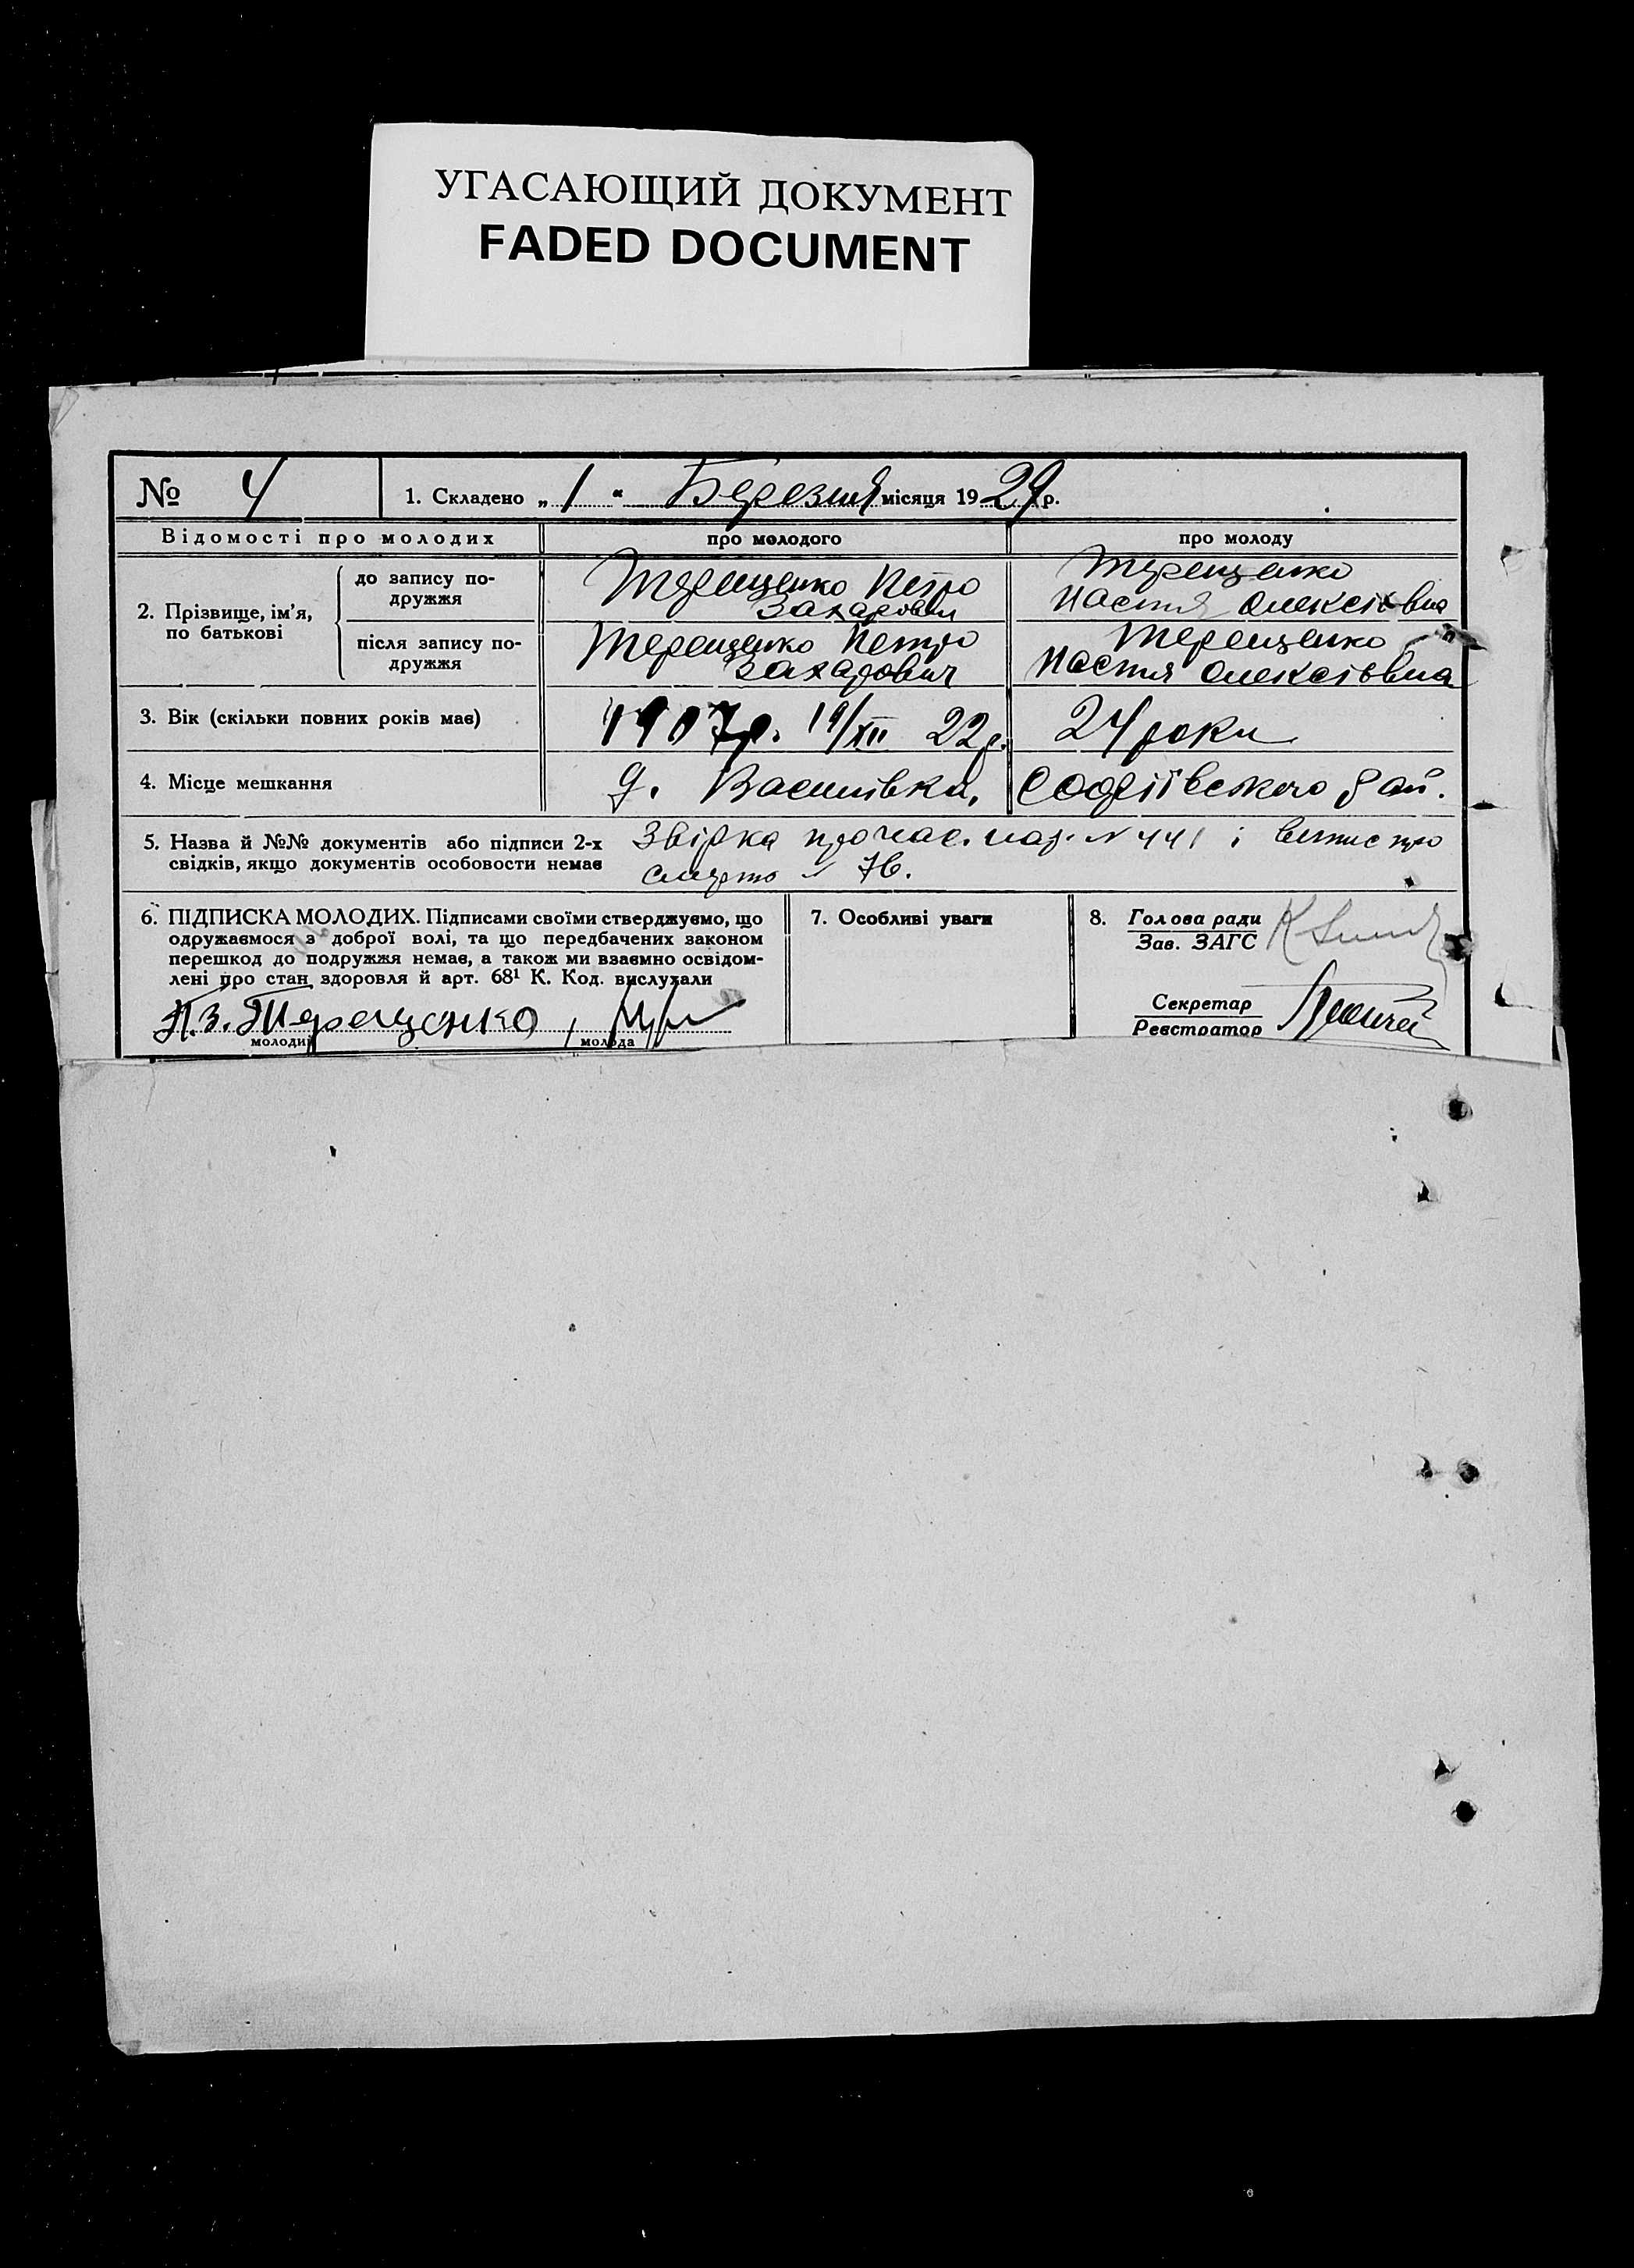 УГАСАЮЩИЙ ДОКУМЕНТ
FADED DOCUMENT
№ 4
1. Складено „ 1 “ Березня місяця 1929 р.
Відомості про молодих
про молодого
про молоду
2. Прізвище, ім’я, по батькові
до запису подружжя
Терещенко Петро
Захарович
Терещенко
Настя Олексіївна
після запису подружжя
Терещенко Петро
Захарович
Терещенко
Настя Олексіївна
3. Вік (скільки повних років має)
1907р. 19/XII 22р.
24 роки
4. Місце мешкання
д. Василівка, Софіївського рай.
5. Назва й №№ документів або підписи 2-х
свідків, якщо документів особовости немає
Звірка про нар. № 441 і витис про
смерть № 76.
6. ПІДПИСКА МОЛОДИХ. Підписами своїми стверджуємо, що
одружаємося з доброї волі, та що передбачених законом
перешкод до подружжя немає, а також ми взаємно освідом-
лені про стан здоровля й арт. 68¹ К. Код. вислухали
П.З. Терещенко
молодий
молода
7. Особливі уваги
8. Голова ради
Зав. ЗАГС
Секретар
Реєстратор